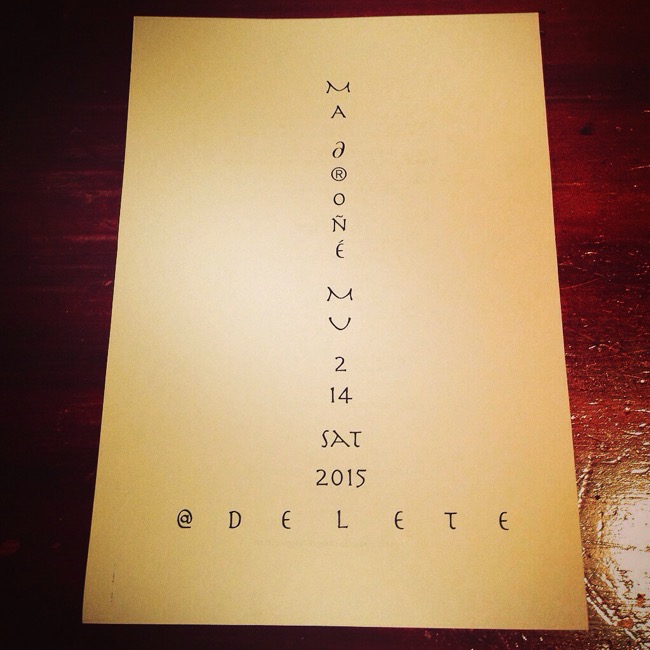 M
A
∂
®
O
Ñ
É
M
U
2
14
SAT
2015
@ D E L E T E